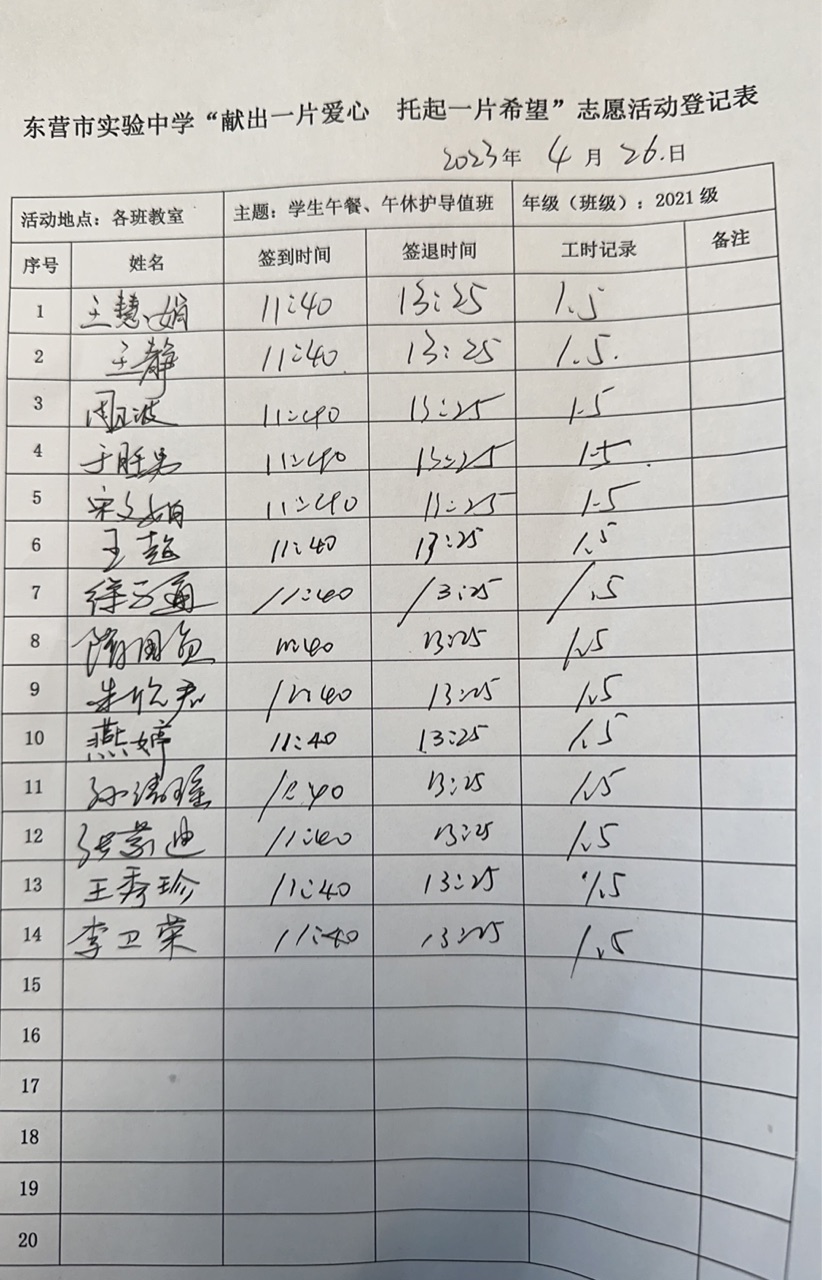 东营市实验中学“献出一片爱心 托起一片希望”志愿活动登记表
2023年 4 月 26.日
活动地点：各班教室 主题：学生午餐、午休护导值班 年级（班级）：2021级
序号 姓名 签到时间 签退时间 工时记录 备注
1 王慧娟 11:40 13:25 1.5
2 王静 11:40 13:25 1.5.
3 周波 11:40 13:25 1.5
4 于胜男 11:40 13:25 1.5
5 宋文娟 11:40 13:25 1.5
6 王超 11:40 13:25 1.5
7 11:40 13:25 1.5
8 11:40 13:25 1.5
9 11:40 13:25 1.5
10 燕婷 11:40 13:25 1.5
11 11:40 13:25 1.5
12 11:40 13:25 1.5
13 王秀珍 11:40 13:25 1.5
14 李卫荣 11:40 13:25 1.5
15
16
17
18
19
20